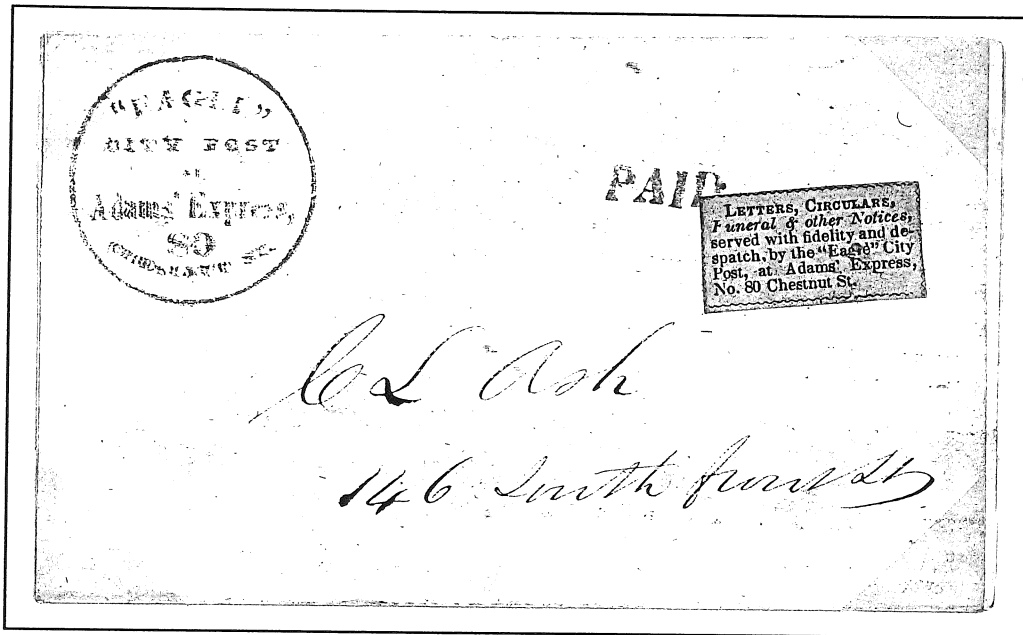 "EAGLE"
CITY POST
AT
Adams' Express,
80
CHESNUT ST.
PAID
LETTERS, CIRCULARS,
Funeral & other Notices,
served with fidelity and de-
spatch, by the "Eagle" City
Post, at Adams' Express,
No. 80 Chestnut St.
C L Ash
146 South front St